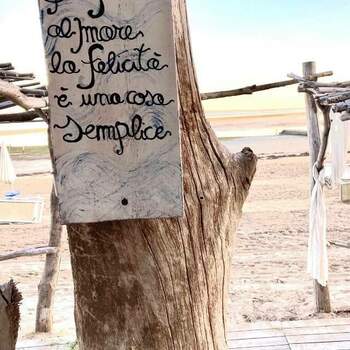 al mare
la felicità
è una cosa
semplice